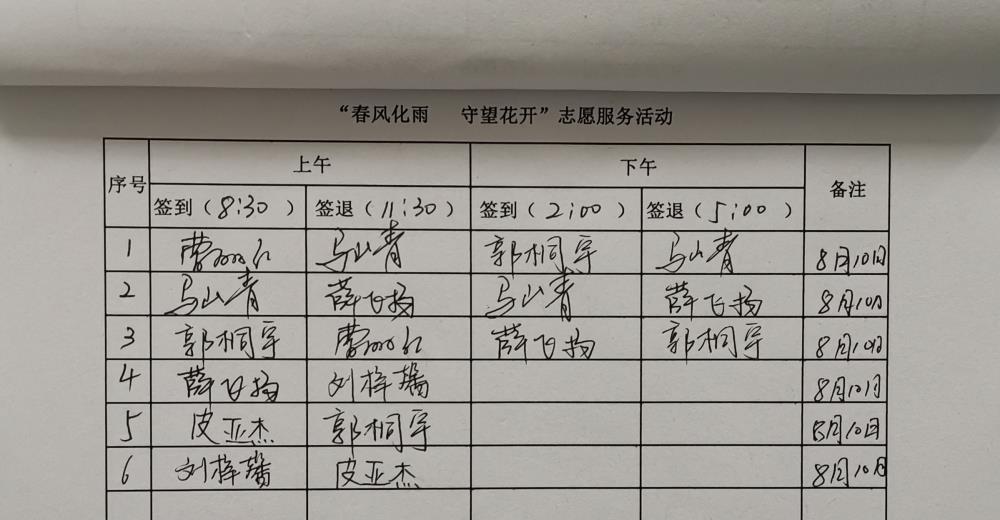 “春风化雨 守望花开”志愿服务活动
序号 上午 下午 备注
签到(8:30) 签退(11:30) 签到(2:00) 签退(5:00)
1 曹 马山青 郭桐宇 马山青 8月10日
2 马山青 薛飞扬 马山青 薛飞扬 8月10日
3 郭桐宇 曹 薛飞扬 郭桐宇 8月10日
4 薛飞扬 刘梓馨 8月10日
5 皮亚杰 郭桐宇 8月10日
6 刘梓馨 皮亚杰 8月10日